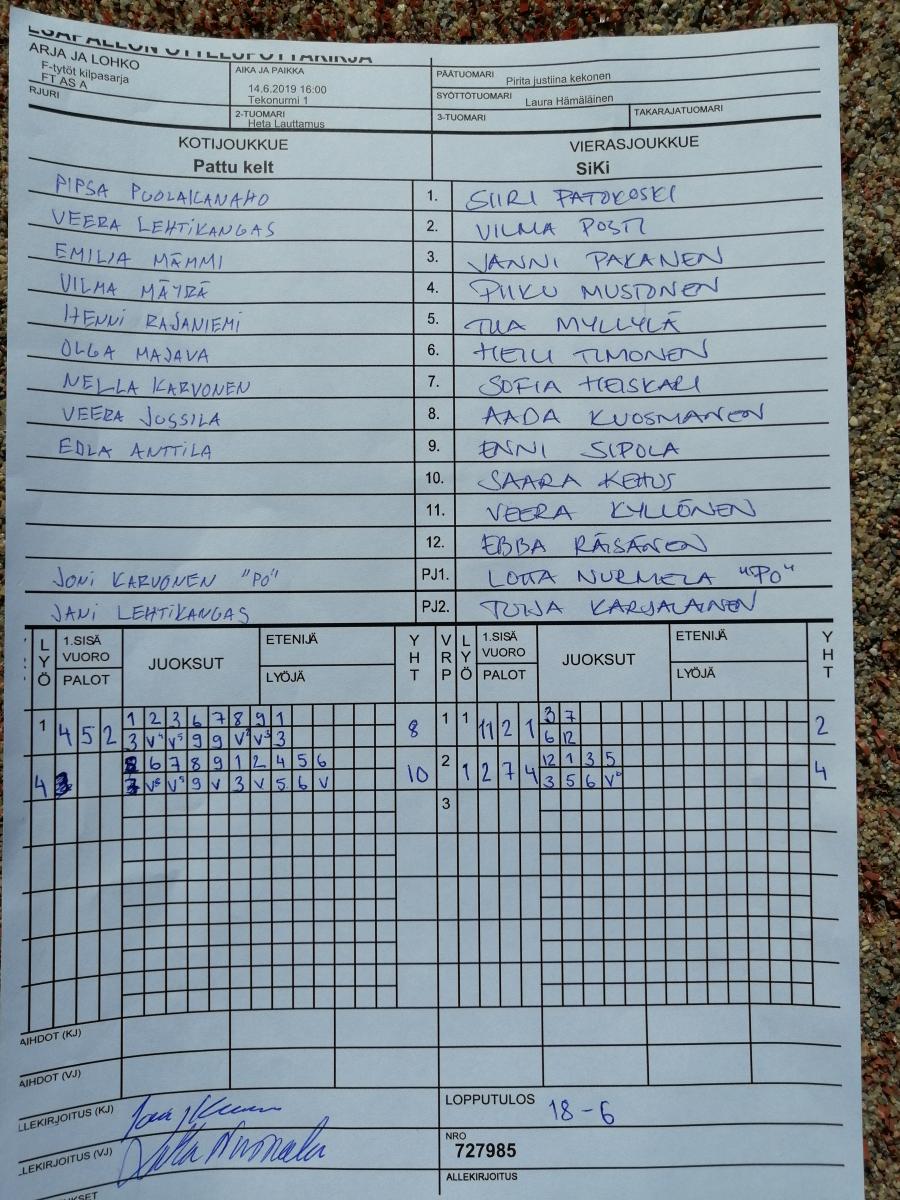 ARJA JA LOHKO
F-tytöt kilpasarja
FT AS A
RJURI
AIKA JA PAIKKA
14.6.2019 16:00
Tekonurmi 1
2-TUOMARI
Heta Lauttamus
PÄÄTUOMARI Pirita justiina kekonen
SYÖTTÖTUOMARI Laura Hämäläinen
3-TUOMARI TAKARAJATUOMARI
KOTIJOUKKUE VIERASJOUKKUE
Pattu kelt SiKi
PIPSA PUOLAKANAHO 1. SIIRI PATOKOSKI
VEERA LEHTIKANGAS 2. VILMA POSTI
EMILIA MÄMMI 3. VANNI PAKANEN
VILMA MÄYRÄ 4. PIIKU MUSTONEN
HENNI RAJANIEMI 5. TIIA MYLLYLÄ
OLGA MAJAVA 6. HEILI TIMONEN
NELLA KARVONEN 7. SOFIA HEISKARI
VEERA JUSSILA 8. AADA KUOSMANEN
EDLA ANTTILA 9. ENNI SIPOLA
10. SAARA KEHUS
11. VEERA KYLLÖNEN
12. EBBA RÄISÄNEN
JONI KARVONEN "PO" PJ1. LOTTA NURMELA "PO"
JANI LEHTIKANGAS PJ2. TUIJA KARJALAINEN
LYÖ 1.SISÄ VUORO PALOT JUOKSUT ETENIJÄ LYÖJÄ YHT VRP LYÖ 1.SISÄ VUORO PALOT JUOKSUT ETENIJÄ LYÖJÄ YHT
1 4 5 2 1 2 3 6 7 8 9 1 8 1 1 11 2 1 3 7 2
3 V⁴ V⁵ 9 9 V² V³ 3 6 12
4 6 7 8 9 1 2 4 5 6 10 2 1 2 7 4 12 1 3 5 4
V⁸ V⁹ 9 V 3 V 5 6 V 3 5 6 V⁶
3
AIHDOT (KJ)
AIHDOT (VJ)
LLEKIRJOITUS (KJ)
LLEKIRJOITUS (VJ)
LOPPUTULOS 18-6
NRO
727985
ALLEKIRJOITUS